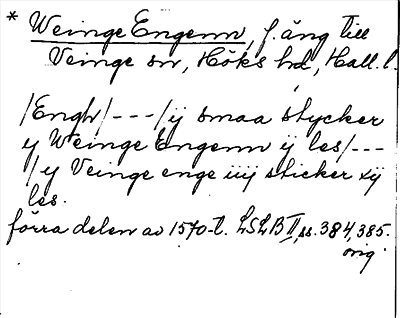 * Weinge Engenn, f. äng till
Veinge sn, Höks hd, Hall. l.
/Engh/---/ÿ smaa stycker
y Weinge Engenn ÿ les/---
/y Veinge enge iiij sticker xij
les.
förra delen av 1570-t. LSLB II, ss. 384, 385.
orig.